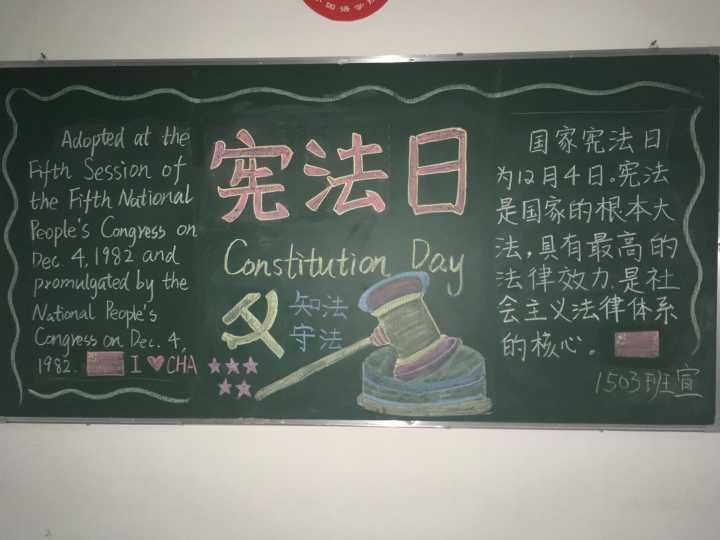 Adopted at the
Fifth Session of
the Fifth National
People's Congress on
Dec. 4, 1982 and
promulgated by the
National People's
Congress on Dec. 4,
1982.
I ♥ CHA
宪法日
Constitution Day
知法
守法
国家宪法日
为12月4日。宪法
是国家的根本大
法,具有最高的
法律效力.是社
会主义法律体系
的核心。
1503班宣